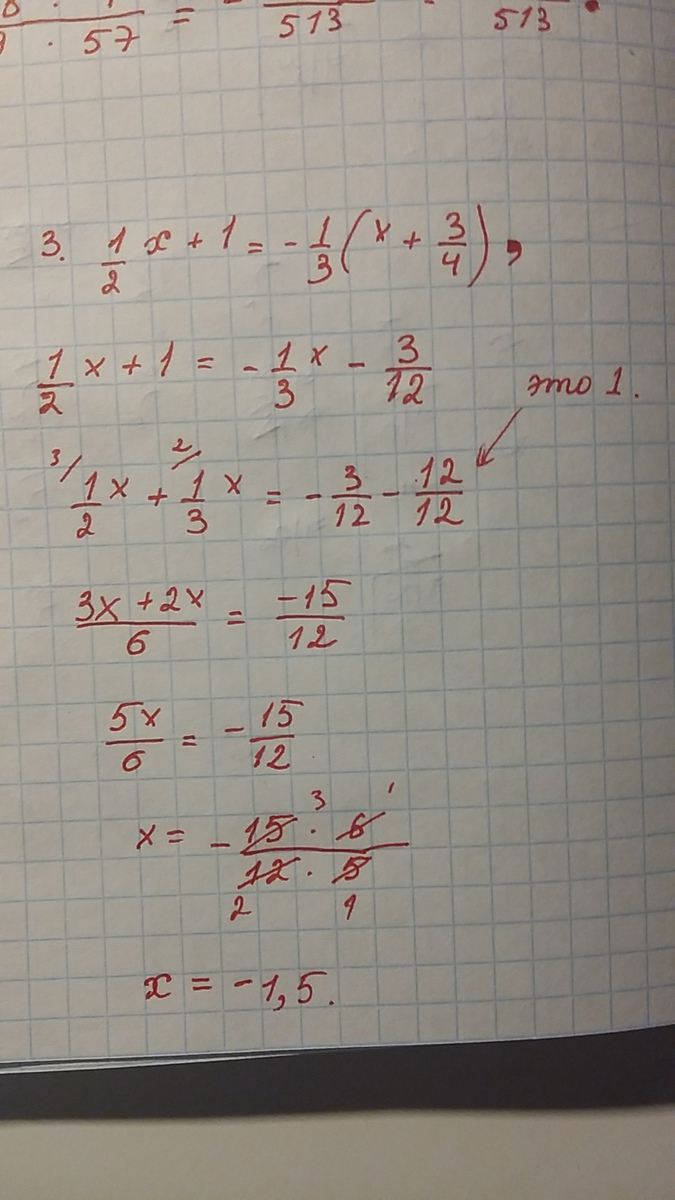 · 57 = 513 513 .
3. 1/2 x + 1 = - 1/3 (x + 3/4),
1/2 x + 1 = - 1/3 x - 3/12
это 1.
3/ 1/2 x + 2/ 1/3 x = - 3/12 - 12/12
3x + 2x / 6 = -15 / 12
5x / 6 = - 15 / 12
x = - 15 3 · 6 1 / 12 2 · 5 1
x = -1,5.